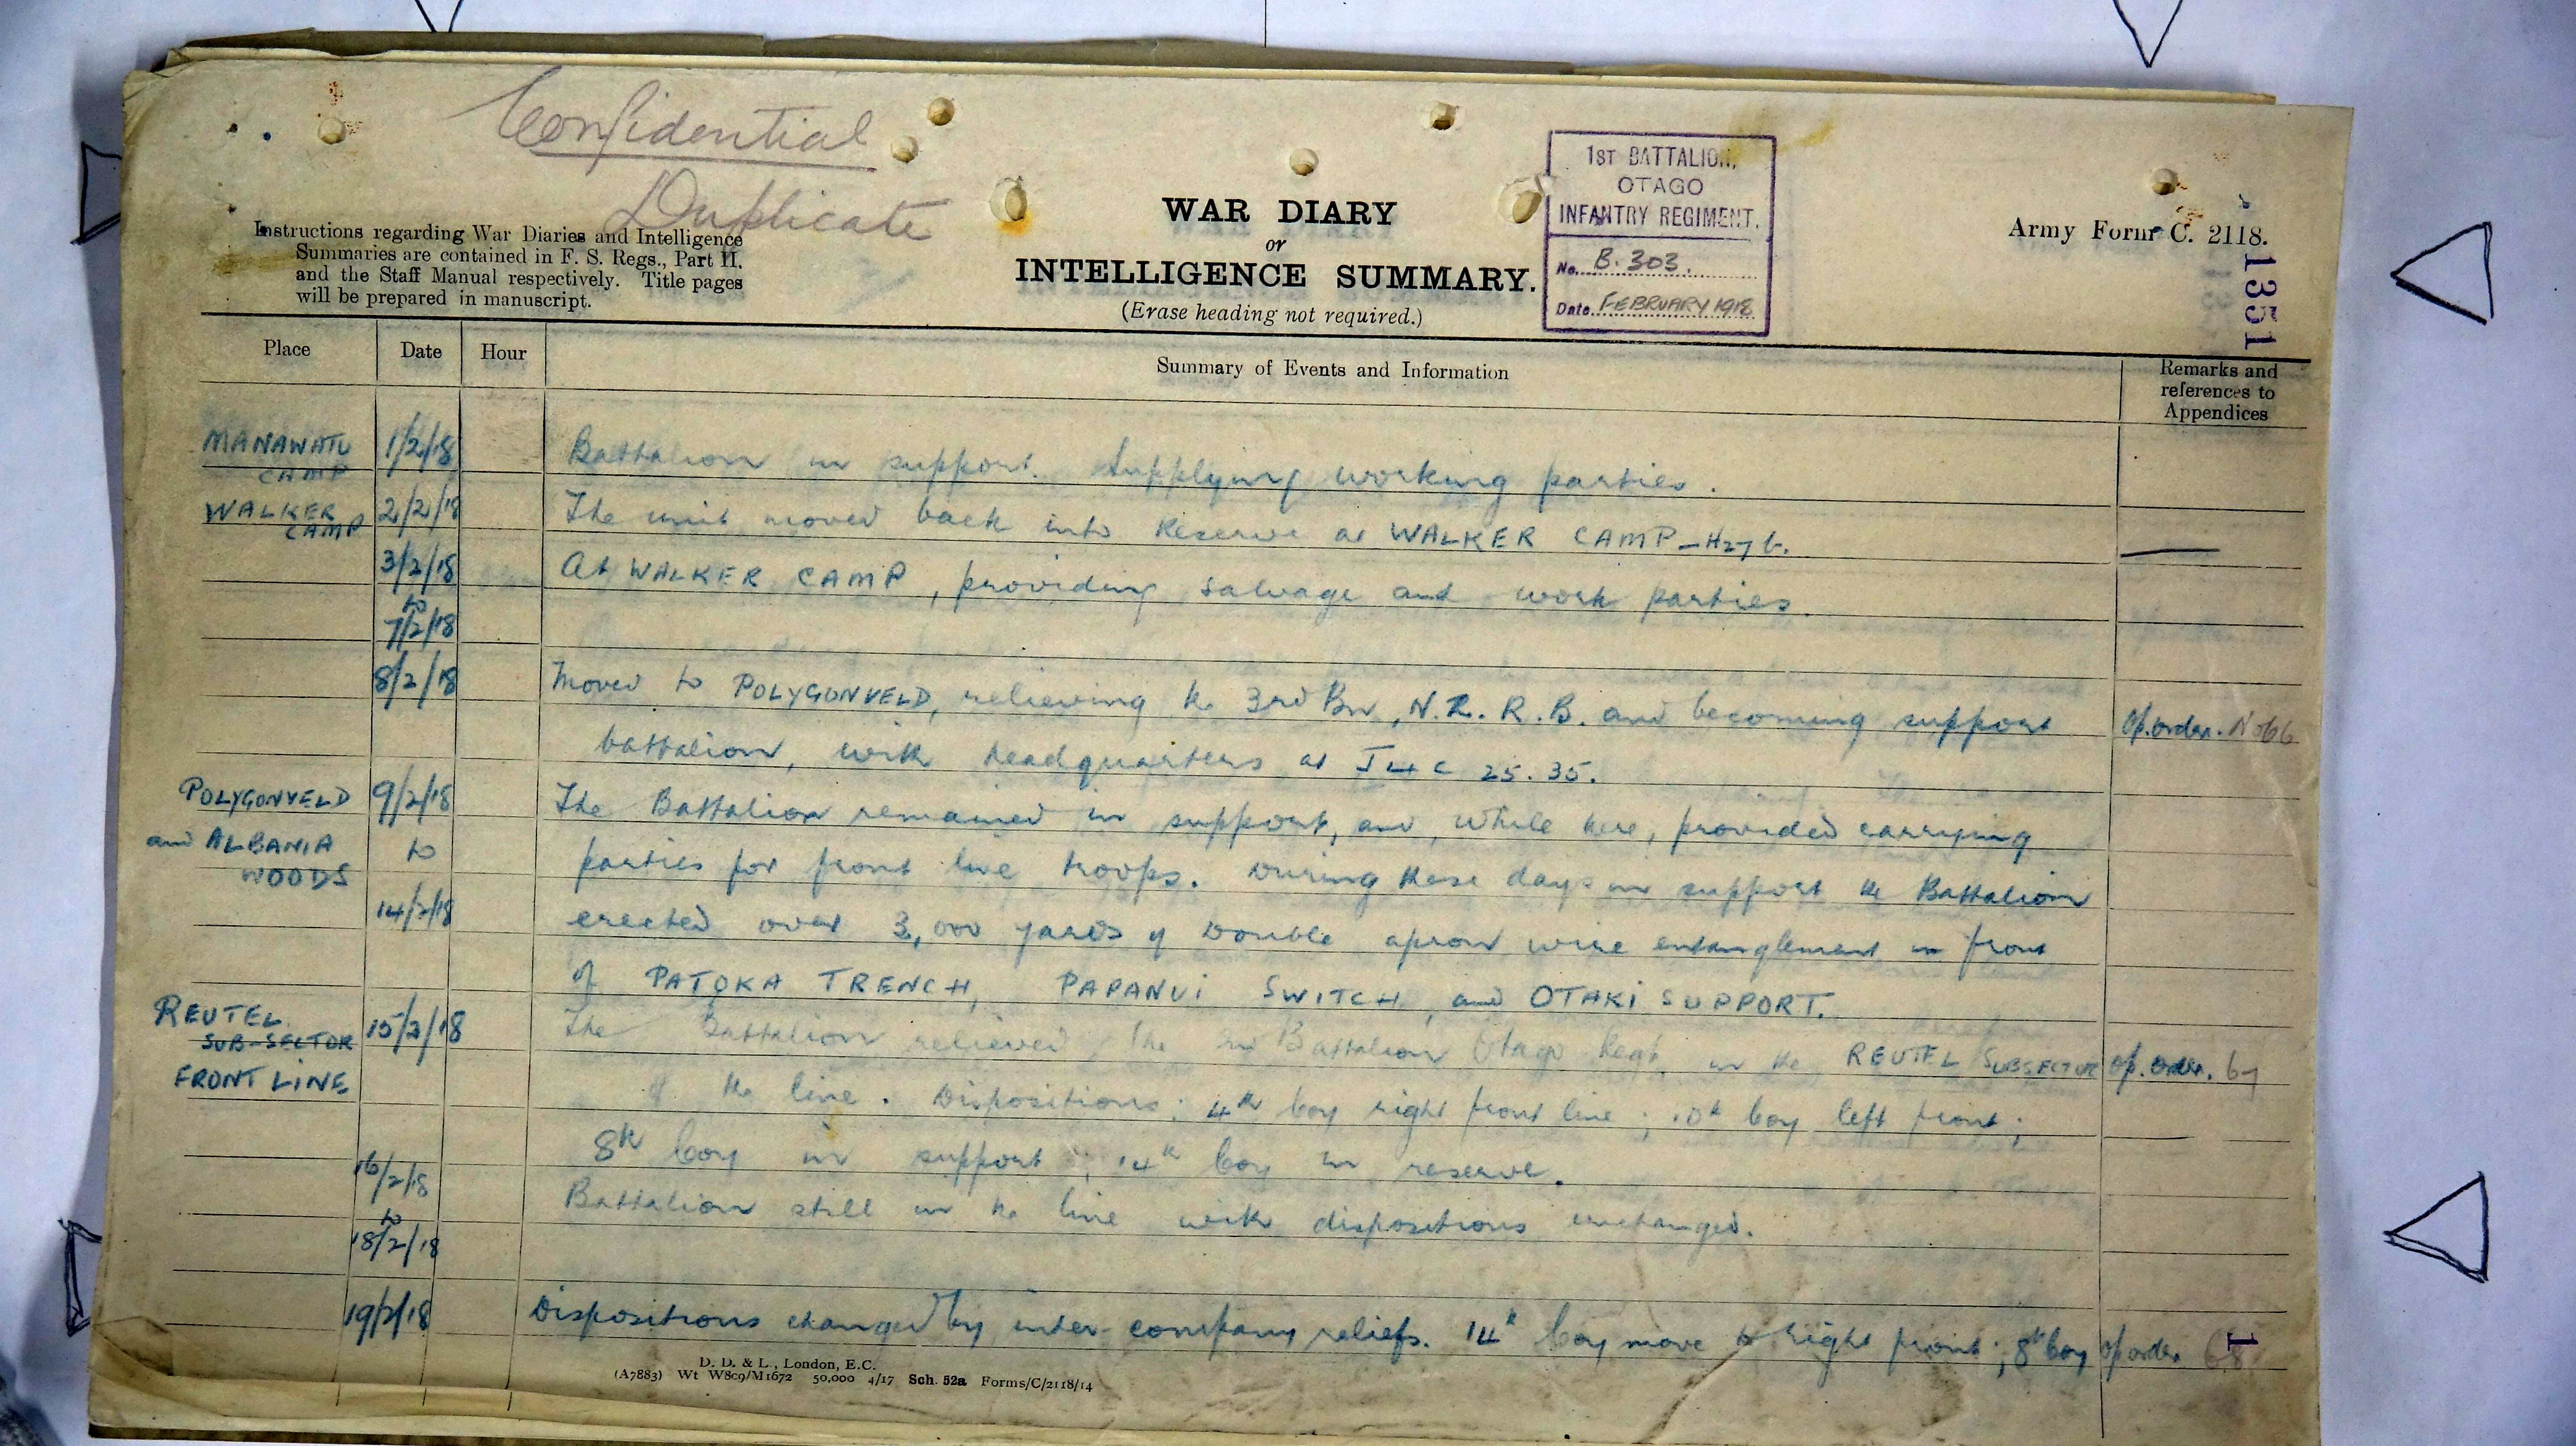 Confidential
Duplicate
Instructions regarding War Diaries and Intelligence
Summaries are contained in F. S. Regs., Part II.
and the Staff Manual respectively. Title pages
will be prepared in manuscript.
WAR DIARY
or
INTELLIGENCE SUMMARY.
(Erase heading not required.)
1ST BATTALION,
OTAGO
INFANTRY REGIMENT.
No. B. 303.
Date. FEBRUARY 1918
Army Form C. 2118.
1351
Place Date Hour Summary of Events and Information Remarks and
references to
Appendices
MANAWATU
CAMP 1/2/18 Battalion in support. Supplying working parties.
WALKER
CAMP 2/2/18 The unit moved back into Reserve at WALKER CAMP – H27 b.
3/2/18 At WALKER CAMP, providing salvage and work parties.
to
7/2/18
8/2/18 Moved to POLYGONVELD, relieving the 3rd Bn, N.Z. R. B. and becoming support Op. order. No 66
battalion, with headquarters at J4 c 25. 35.
POLYGONVELD 9/2/18 The Battalion remained in support, and, while here, provided carrying
and ALBANIA to parties for front line troops. During these days in support the Battalion
WOODS
14/2/18 erected over 3,000 yards of double apron wire entanglement in front
of PATOKA TRENCH, PAPANUI SWITCH, and OTAKI SUPPORT.
REUTEL
SUB-SECTOR 15/2/18 The Battalion relieved the Battalion Otago Regt. in the REUTEL SUBSECTOR Op. Order. 67
FRONT LINE of the line. Dispositions: 4th Coy right front line; 10th Coy left front;
8th Coy in support; 14th Coy in reserve.
16/2/18 Battalion still in the line with dispositions unchanged.
to
18/2/18
19/2/18 Dispositions changed by inter-company reliefs. 14th Coy move to right front; 8th Coy Op order 68
1
D. D. & L., London, E.C.
(A7883) Wt W809/M1672 50,000 4/17 Sch. 52a Forms/C/2118/14